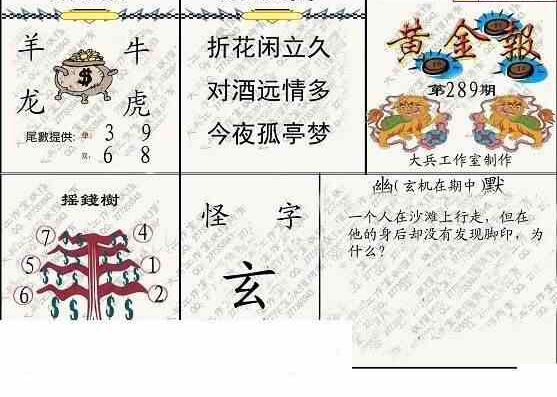 羊 牛
$
龙 虎
尾數提供: 單: 3 9
双: 6 8
折花闲立久
对酒远情多
今夜孤亭梦
黄金報
第289期
大兵工作室制作
摇錢樹
7 4
5 1
6 2
$ $ $ $ $ $
怪 字
玄
幽(玄机在期中)默
一个人在沙滩上行走，但在
他的身后却没有发现脚印，为
什么?